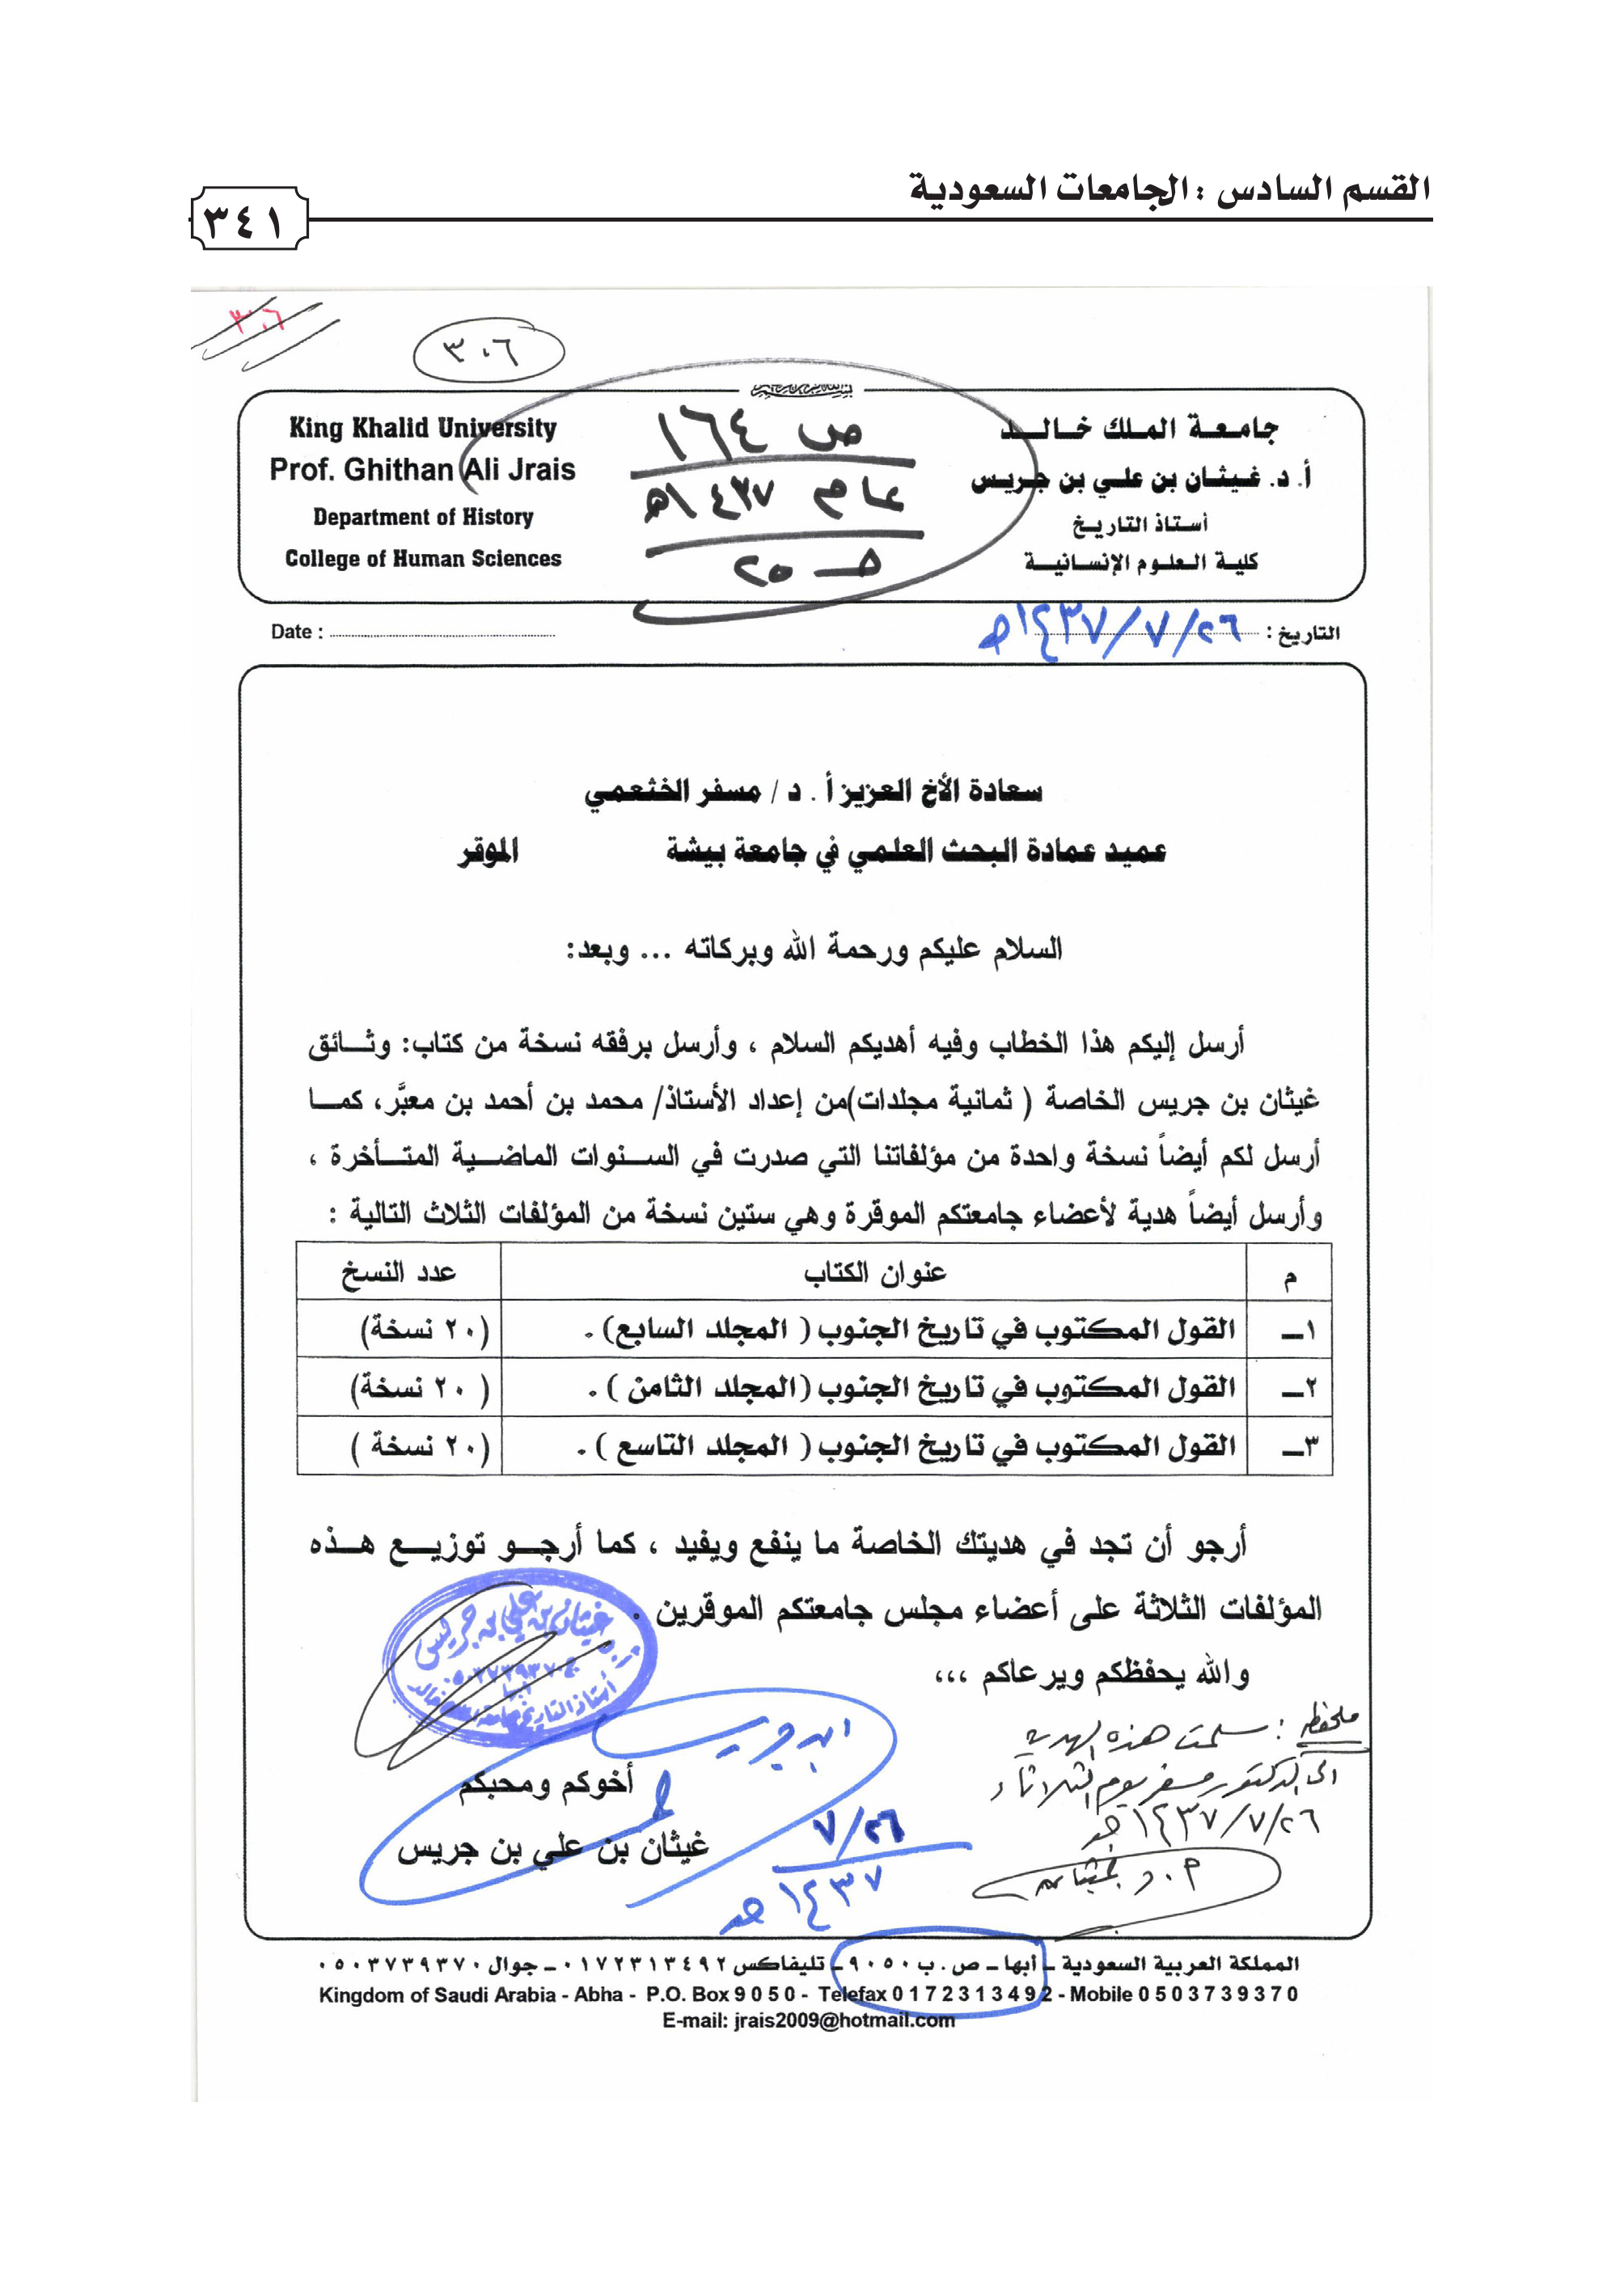 القسم السادس : الجامعات السعودية
٣٤١
٣٠٦
٣٠٦
جامعة الملك خالد
أ. د. غيثان بن علي بن جريس
أستاذ التاريخ
كلية العلوم الإنسانية
ص ١٦٤
عام ١٤٣٧هـ
King Khalid University
Prof. Ghithan Ali Jrais
Department of History
College of Human Sciences
التاريخ : ٢٦/٧/١٤٣٧هـ
Date :
سعادة الأخ العزيز أ . د / مسفر الخثعمي
عميد عمادة البحث العلمي في جامعة بيشة الموقر
السلام عليكم ورحمة الله وبركاته ... وبعد:
أرسل إليكم هذا الخطاب وفيه أهديكم السلام ، وأرسل برفقه نسخة من كتاب: وثـائق
غيثان بن جريس الخاصة ( ثمانية مجلدات)من إعداد الأستاذ/ محمد بن أحمد بن معبَّر، كمـا
أرسل لكم أيضاً نسخة واحدة من مؤلفاتنا التي صدرت في السـنوات الماضـية المتـأخرة ،
وأرسل أيضاً هدية لأعضاء جامعتكم الموقرة وهي ستين نسخة من المؤلفات الثلاث التالية :
م عنوان الكتاب عدد النسخ
١ـ القول المكتوب في تاريخ الجنوب ( المجلد السابع) . (٢٠ نسخة)
٢ـ القول المكتوب في تاريخ الجنوب (المجلد الثامن ) . ( ٢٠ نسخة)
٣ـ القول المكتوب في تاريخ الجنوب ( المجلد التاسع ) . (٢٠ نسخة )
أرجو أن تجد في هديتك الخاصة ما ينفع ويفيد ، كما أرجـو توزيـع هـذه
المؤلفات الثلاثة على أعضاء مجلس جامعتكم الموقرين .
والله يحفظكم ويرعاكم ،،،
غيثان بن علي بن جريس
٠٥٠٣٧٣٩٣٧٠
أبها
أستاذ التاريخ بجامعة الملك خالد
ملحظه : سلمت هذه الهدية
الى الدكتور مسفر يوم الثلاثاء
٢٦/٧/١٤٣٧هـ
ابن جريس
أخوكم ومحبكم
غيثان بن علي بن جريس
٢٦/٧
١٤٣٧هـ
المملكة العربية السعودية ـ أبها ـ ص . ب ٩٠٥٠ ـ تليفاكس ٠١٧٢٣١٣٤٩٢ ـ جوال ٠٥٠٣٧٣٩٣٧٠
Kingdom of Saudi Arabia - Abha - P.O. Box 9 0 5 0 - Telefax 0 1 7 2 3 1 3 4 9 2 - Mobile 0 5 0 3 7 3 9 3 7 0
E-mail: jrais2009@hotmail.com